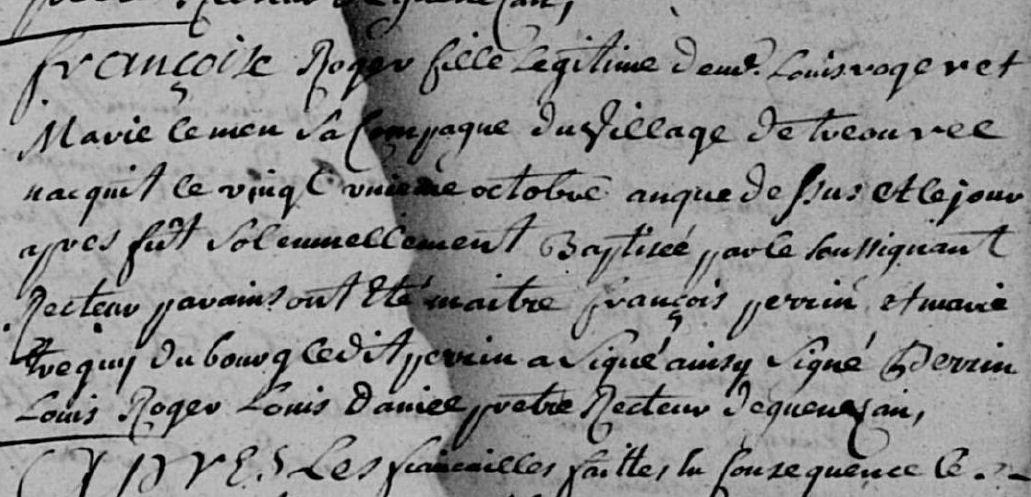 françoise Roger fille Legitime de m.e Louis roger et
Marie le men sa Compagne du Village de treourel
nacquit le vingt unieme octobre an que dessus et le jour
apres fut solennellement Baptiseé par le soussignant
Recteur parains ont Eté maitre françois perrin et marie
treguy du bourg ledit perrin a signé ainsy signé Perrin
Louis Roger Louis Daniel pretre Recteur de quenezan,
APRES Les fiancailles faittes En Consequence le